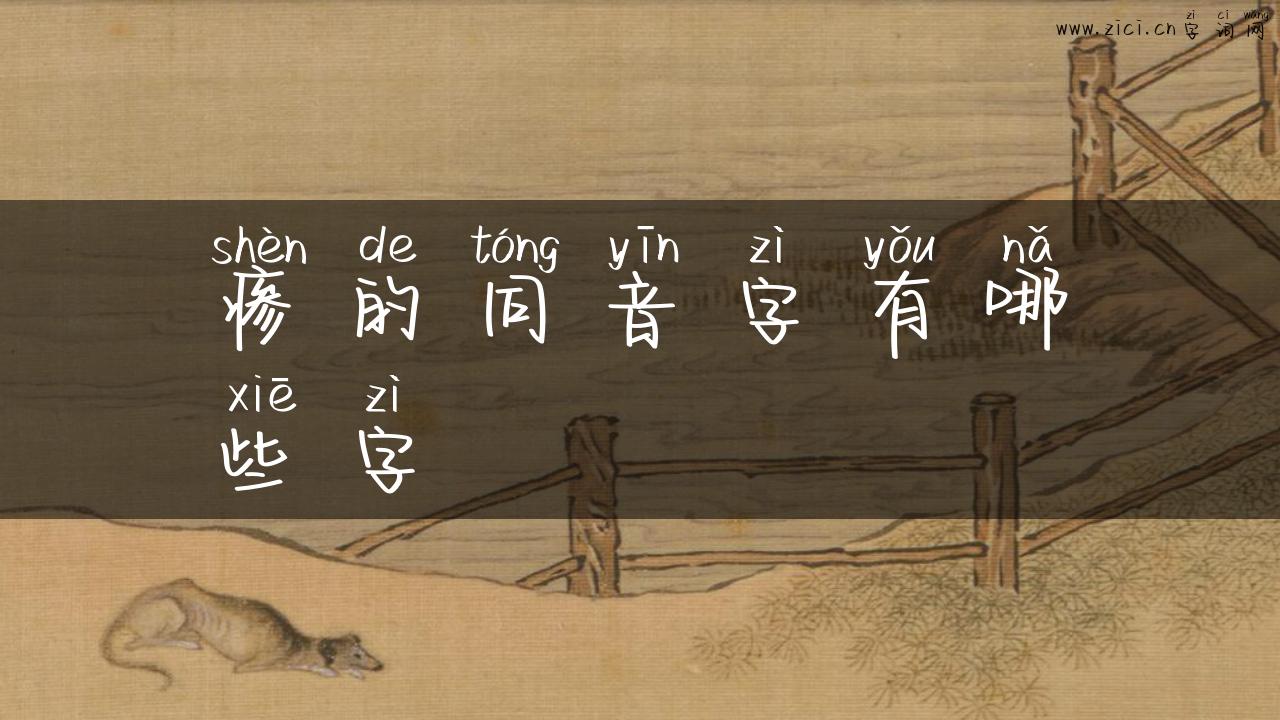 zì cí wǎng
www.zici.cn 字词网
shèn de tóng yīn zì yǒu nǎ
瘆的同音字有哪
xiē zì
些字